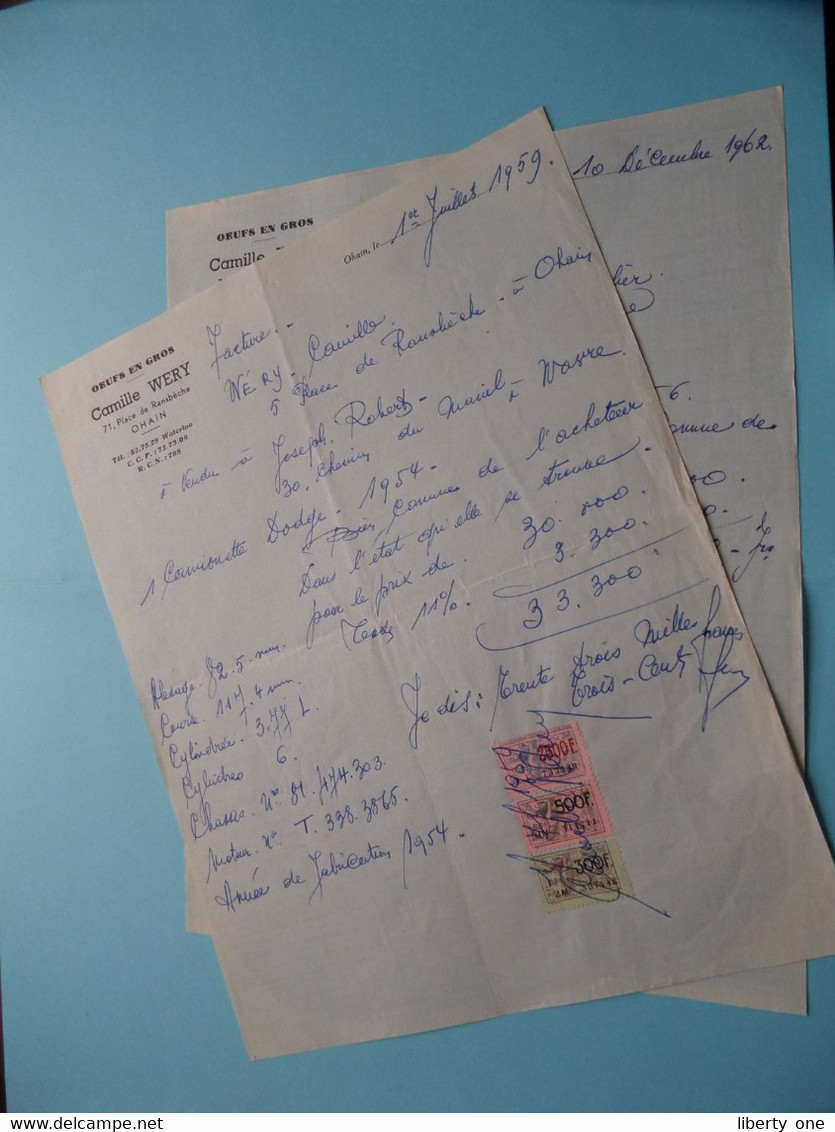 10 Décembre 1962.
OEUFS EN GROS
Camille
de
OEUFS EN GROS
Camille WERY
71, Place de Ransbèche
OHAIN
Tél.: 52.75.29 Waterloo
C. C. P.: 73.73.06
R. C. N.: 798
Ohain, le 1er Juillet 1959.
Facture.-
WÉRY - Camille.
5 Place de Ransbèche - à Ohain
à Vendu à Joseph. Robert -
30. Chemin du à Wavre.
1 Camionette Dodge. 1954 -
comme de l'acheteur
Dans l'état qu'elle se trouve -
pour le prix de. 30.000.
Taxe 11%. 3.300.
33.300.
Je dis: Trente trois Mille
trois-Cent
Alesage. 82.5 mm.
Course. 117.4 mm.
Cylindrée. 3.77 L.
Cylindres 6.
Chassis. N° 81.474.303.
Moteur. n° T. 338.3865.
Année de Fabrication 1954.
2500F.
500F.
300F.
delcampe.net
liberty one